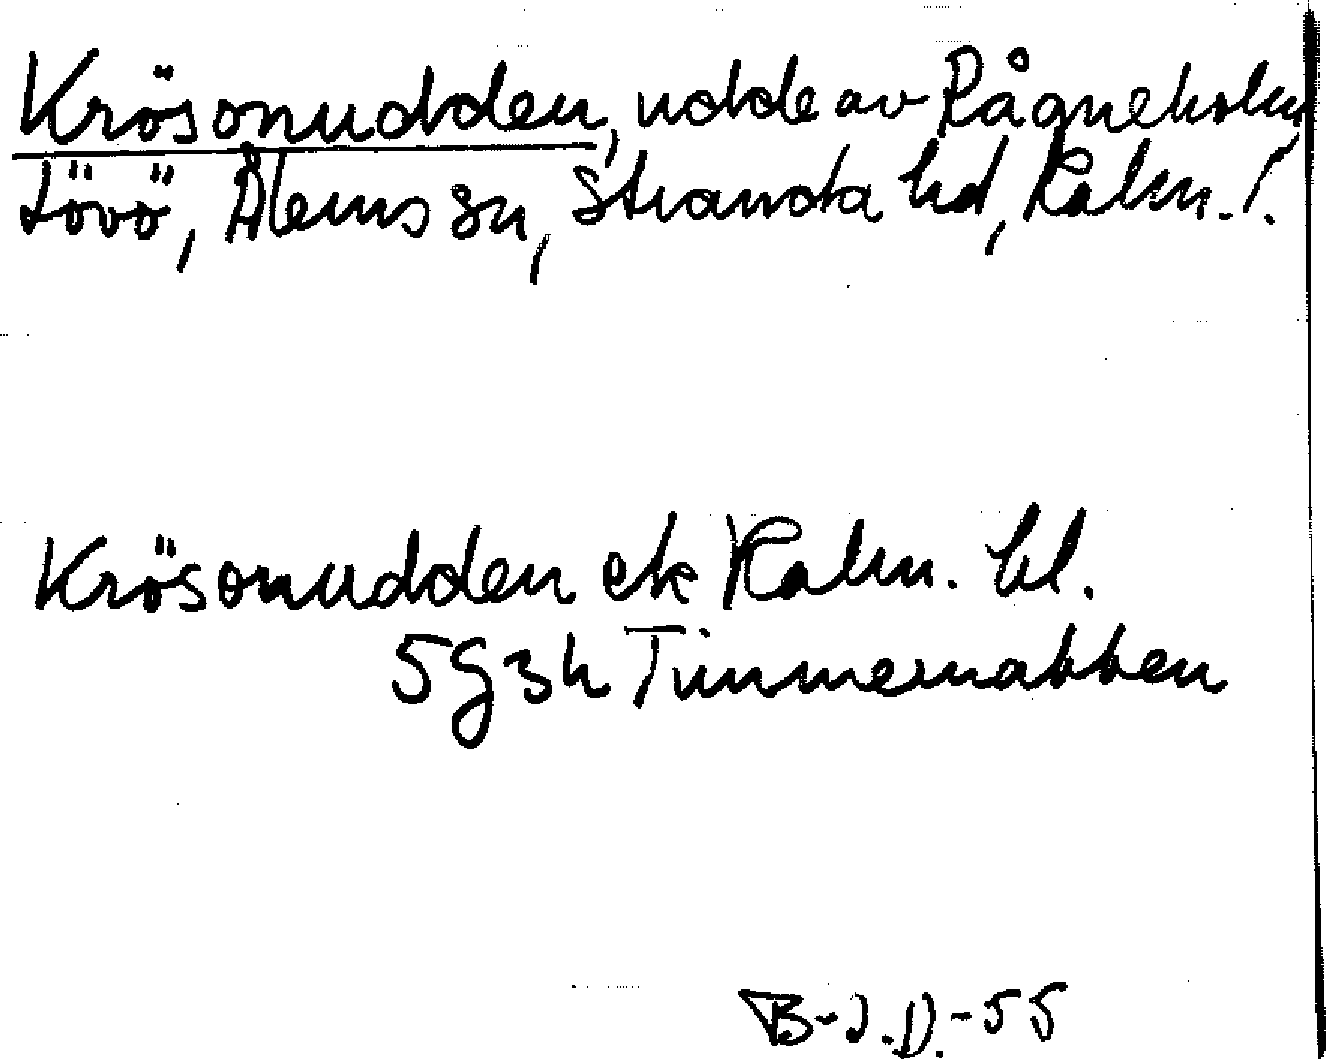 Krösonudden, udde av Rågneholm,
Lövö, Ålems sn, Stranda hd, Kalm. l.
Krösonudden ek Kalm. bl.
5g3h Timmernabben
B-J.D.-55